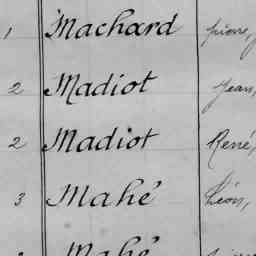 1 Machard pierre,
2 Madiot Jean,
2 Madiot René,
3 Mahé Léon,
Mahé